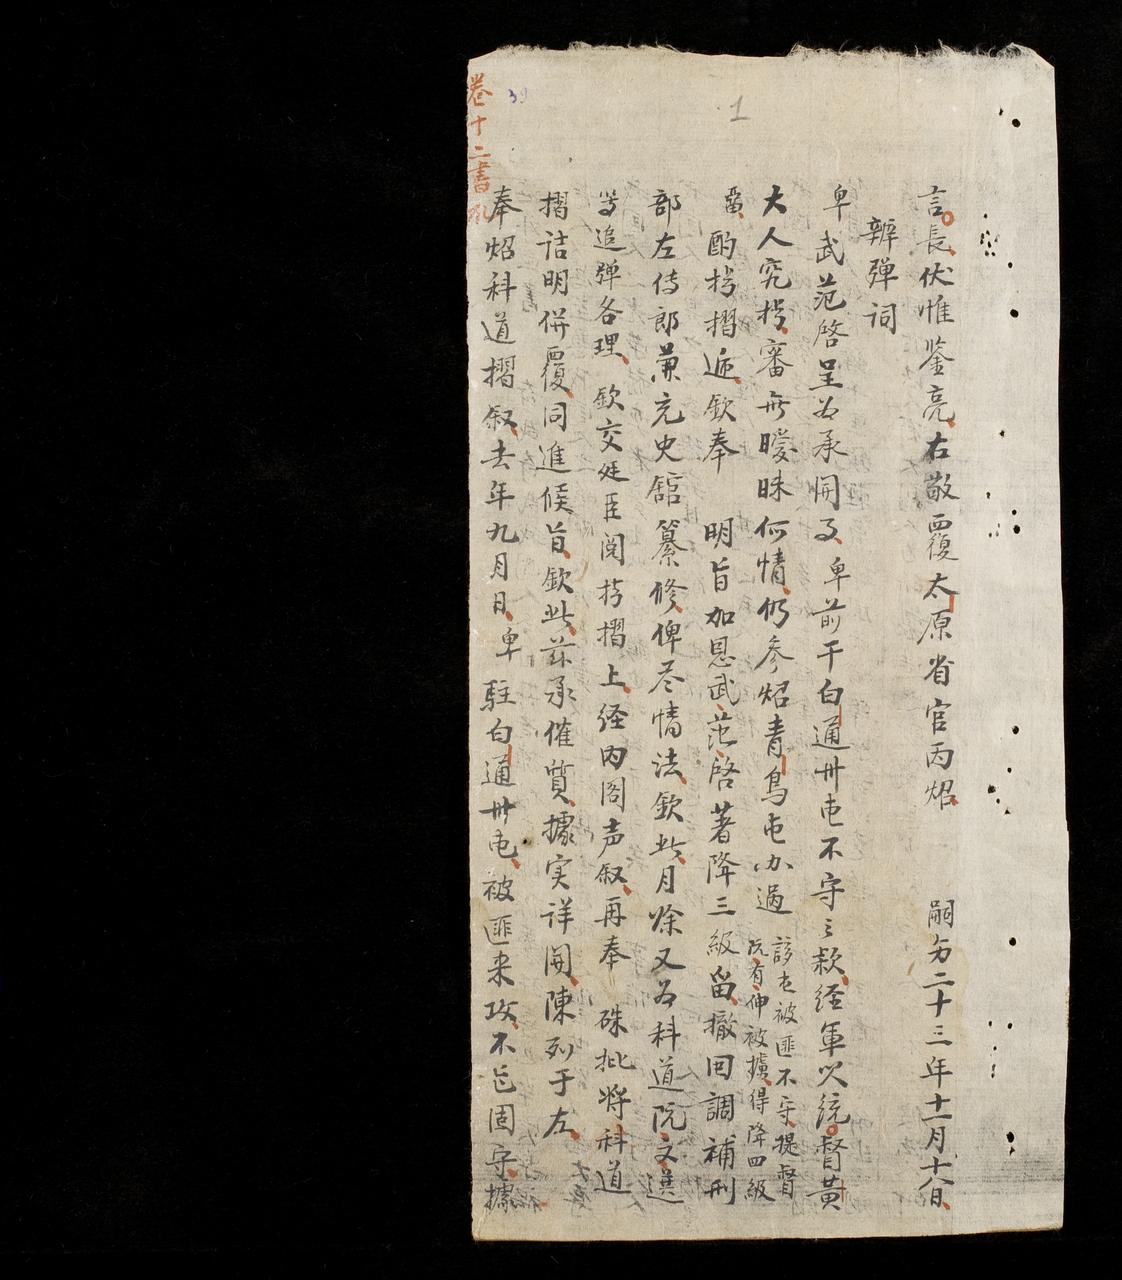 言長伏惟鉴亮右敬覆太原省官丙炤 嗣方二十三年十一月十六日
辦弹詞
卑武范啓呈为承開事卑前干白通卅屯不守之款経軍次統督黄
大人究拷審無曖昧何情仍参炤青鳥屯办過 該屯被匪不守提督阮有伸被擄得降四級
畱酌拷摺逓欽奉 明旨加恩武范啓著降三級畱撤回調補刑
部左侍郎兼充史舘纂修俾尽情法欽此月馀又为科道阮文選
等追弹各理 欽交廷臣閲拷摺上経内阁声叙再奉 硃批将科道
摺詰明併覆同進候旨欽此茲承催質據实详開陳列于左
奉炤科道摺叙去年九月日卑駐白通卅屯被匪来攻不 固守據
卷十二書
39
1